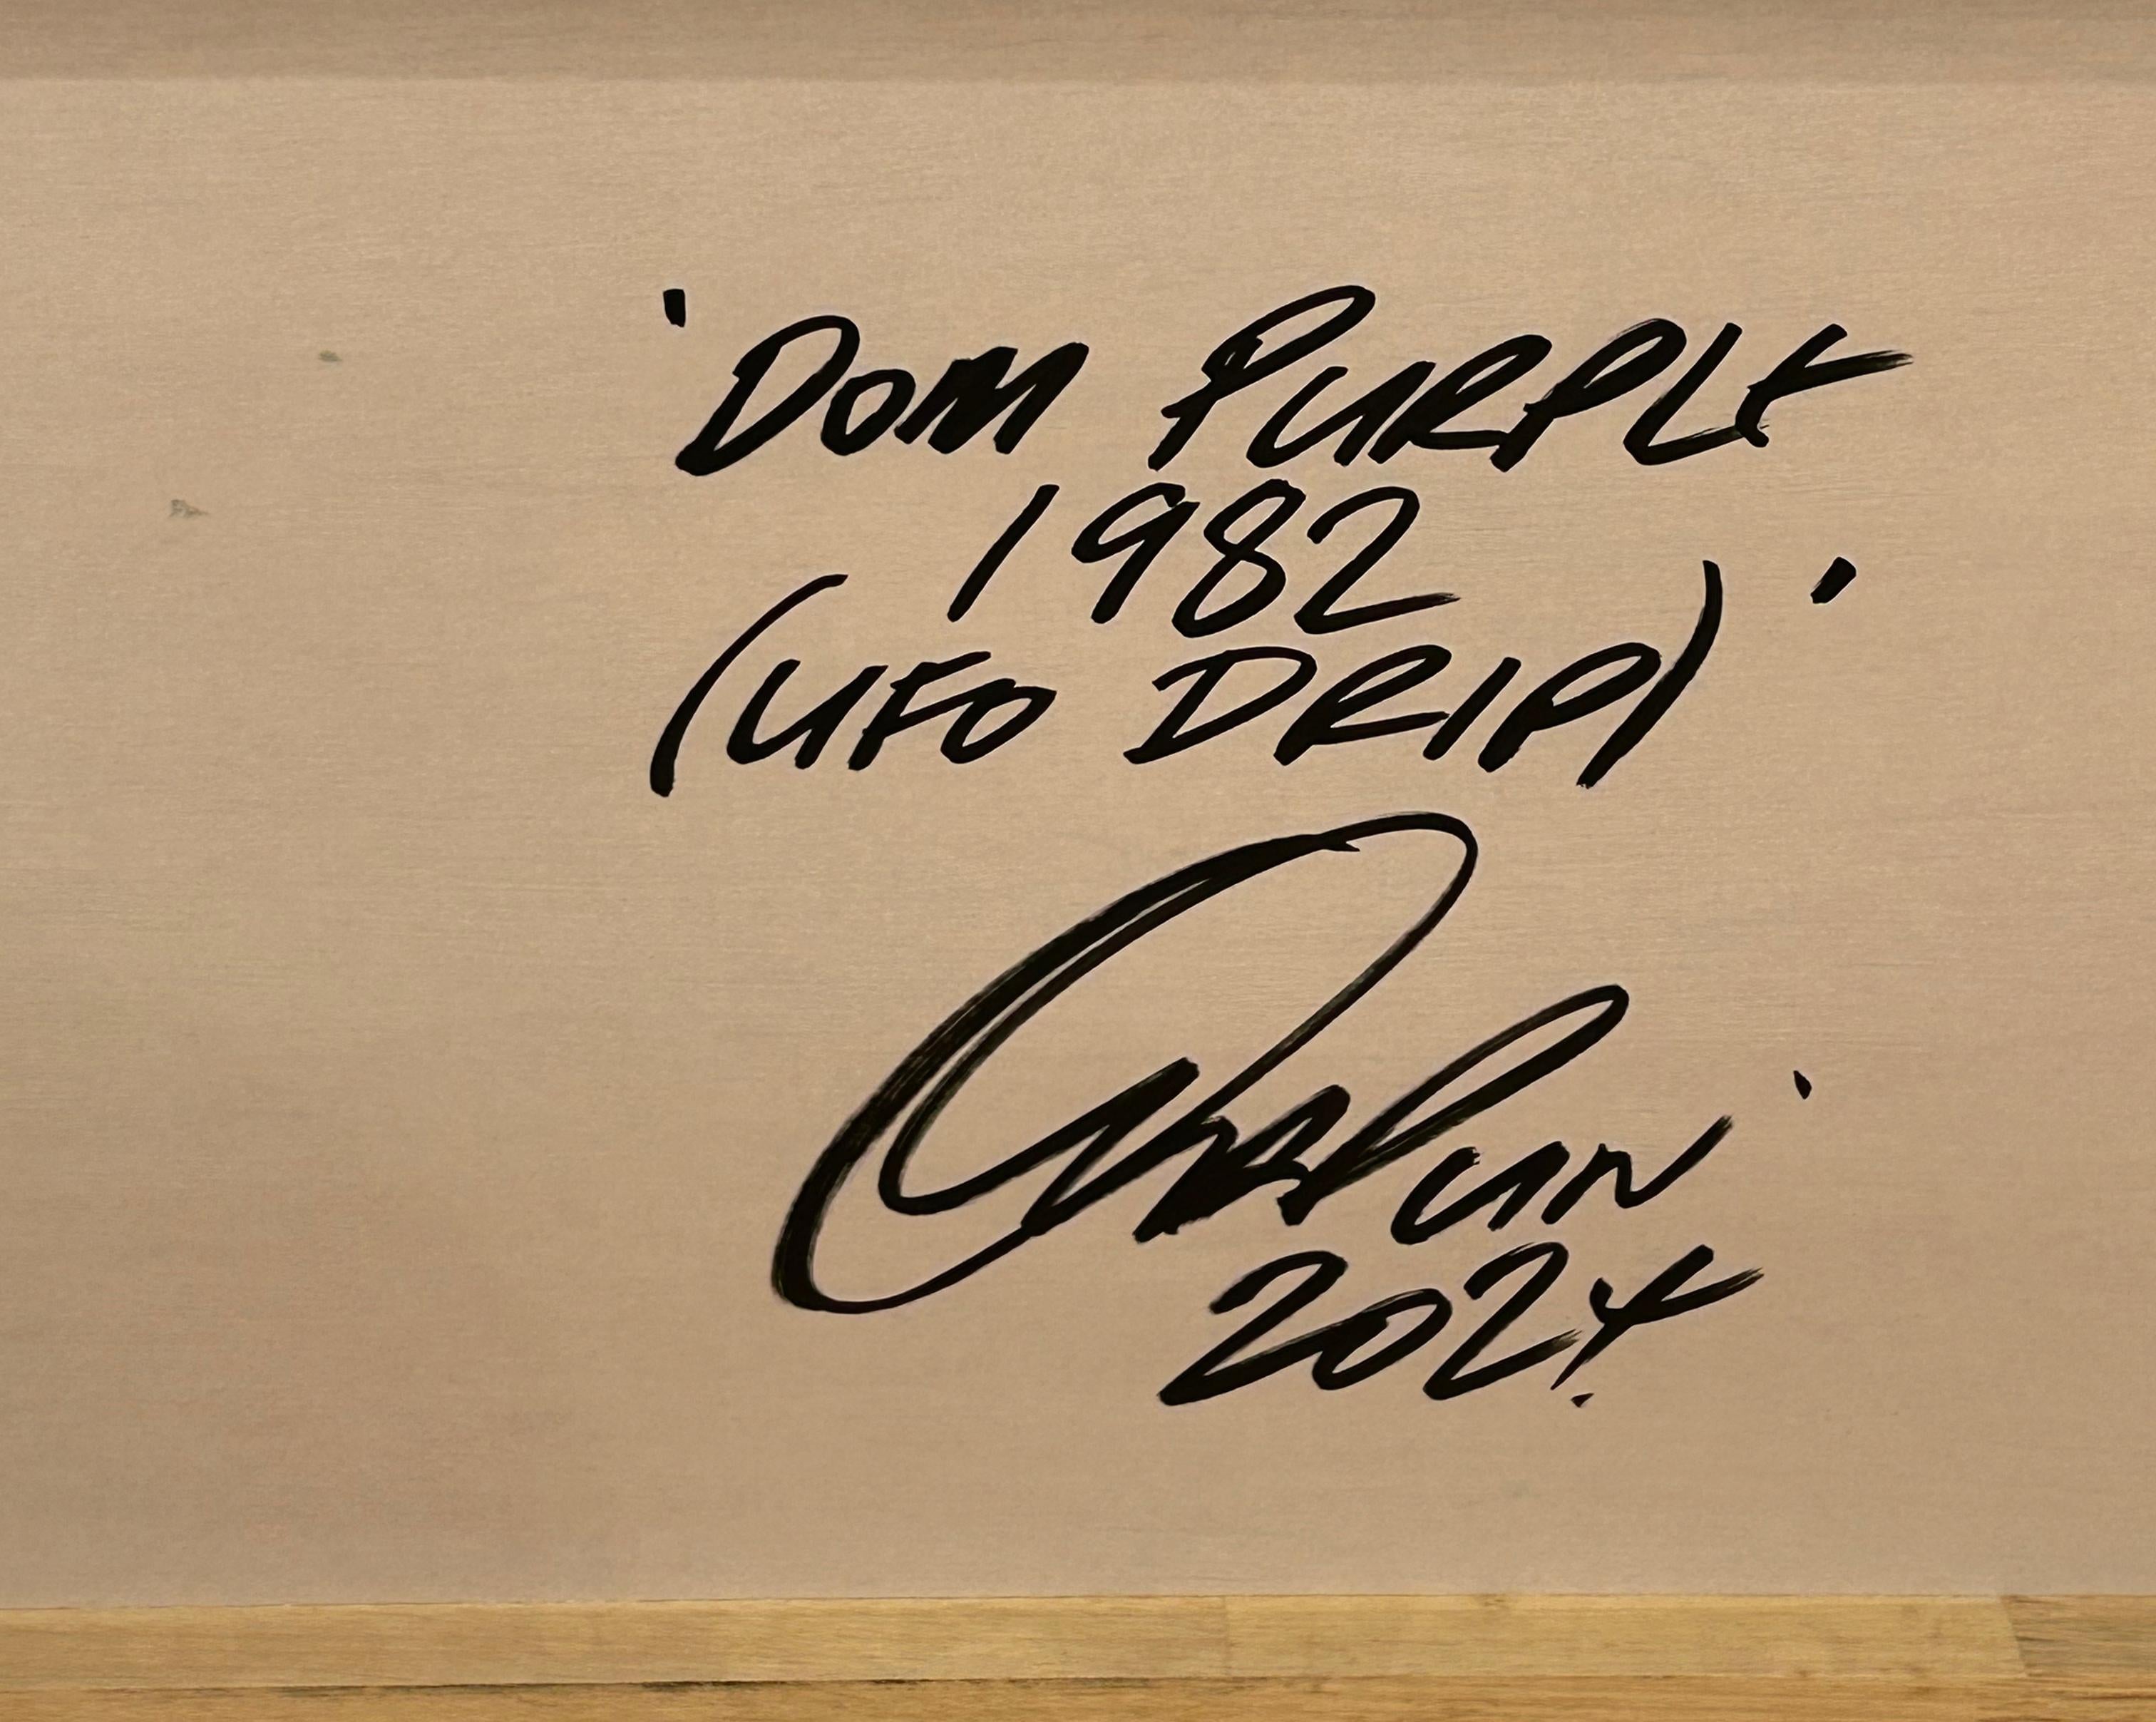 'DOM PURPLE
1982
(UFO DRIP)'
2024